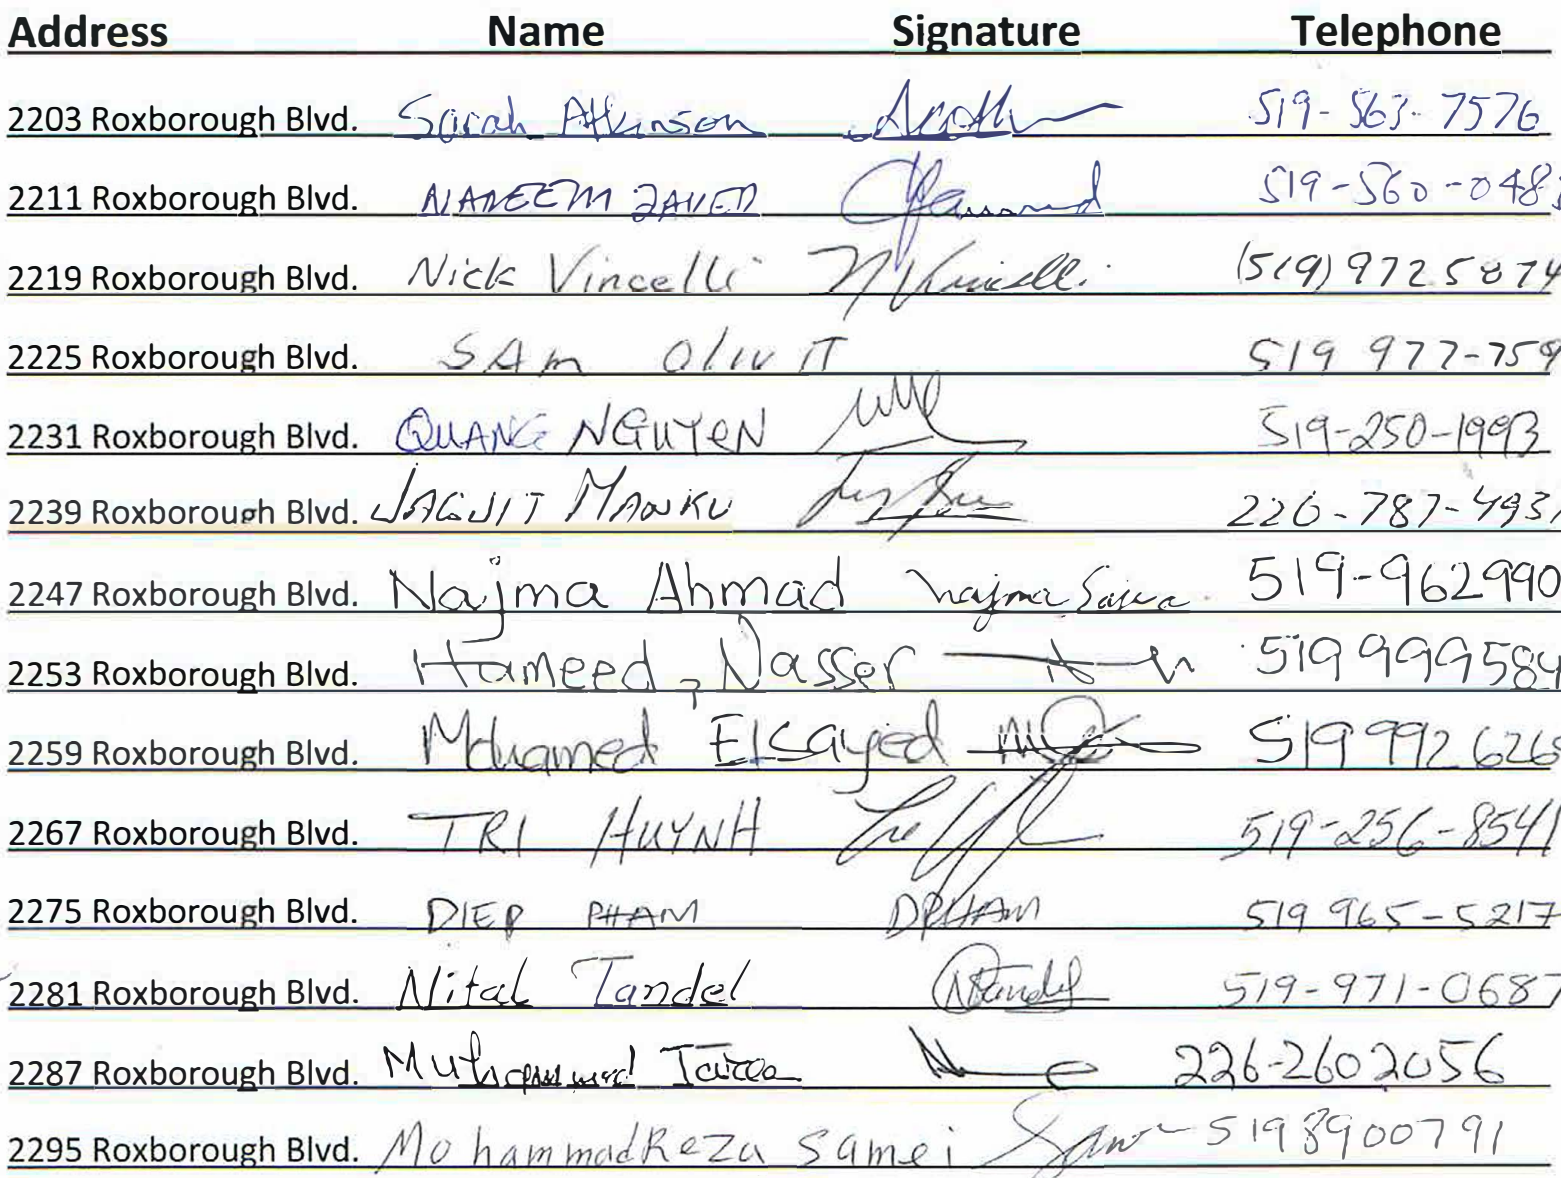 Address Name Signature Telephone
2203 Roxborough Blvd. Sarah Atkinson 519-563-7576
2211 Roxborough Blvd. NADEEM ZAVED 519-560-048
2219 Roxborough Blvd. Nick Vincelli N Vincelli (519) 972 5874
2225 Roxborough Blvd. SAm OlIV IT 519 977-759
2231 Roxborough Blvd. QUANG NGUYEN 519-250-1993
2239 Roxborough Blvd. JAGJIT MANKU 226-787-4931
2247 Roxborough Blvd. Najma Ahmad najma 519-962990
2253 Roxborough Blvd. Hameed, Nasser 519 999584
2259 Roxborough Blvd. Mohamed Elsayed 519 992 626
2267 Roxborough Blvd. TRI HUYNH 519-256-8541
2275 Roxborough Blvd. DIEP PHAM DPHAM 519 965-5217
2281 Roxborough Blvd. Nital Tandel NTandel 519-971-0687
2287 Roxborough Blvd. Muhammad 226-2602056
2295 Roxborough Blvd. MohammadReza Samei 5198900791